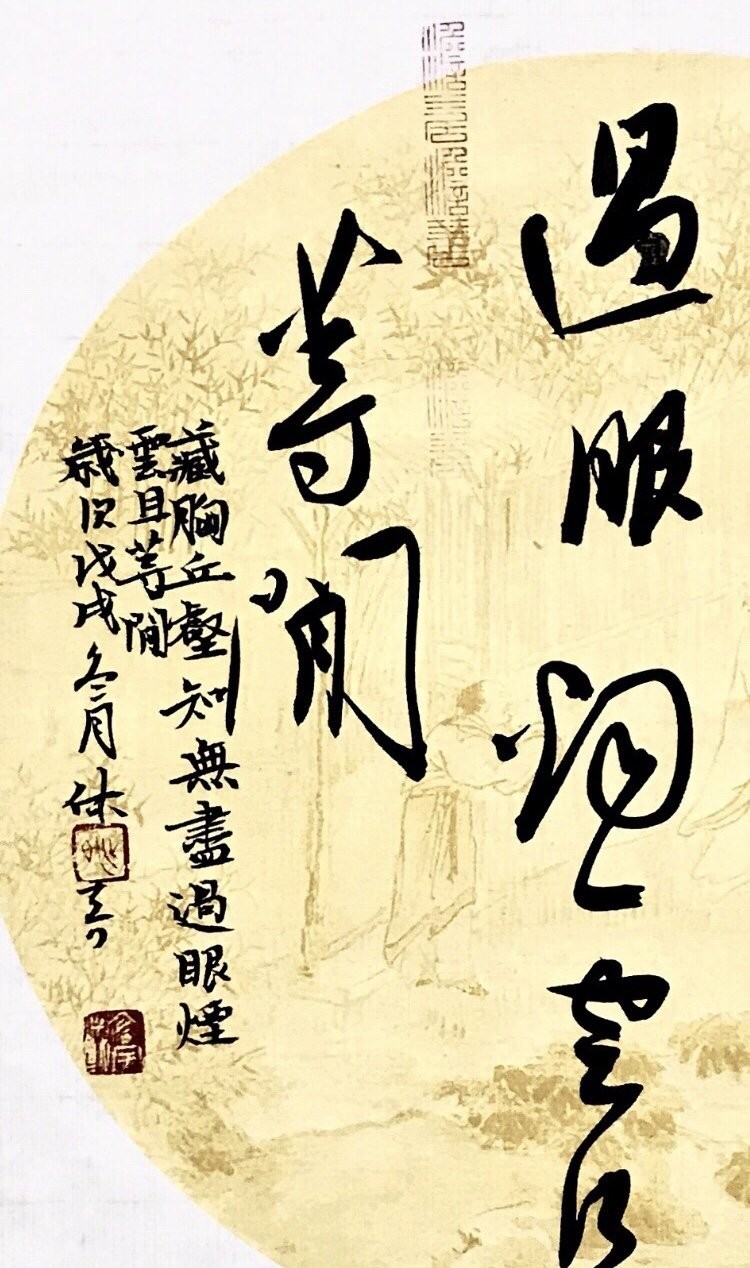 過眼煙雲且
等閒
藏胸丘壑知無盡過眼煙
雲且等閒
歲次戊戌冬二月休